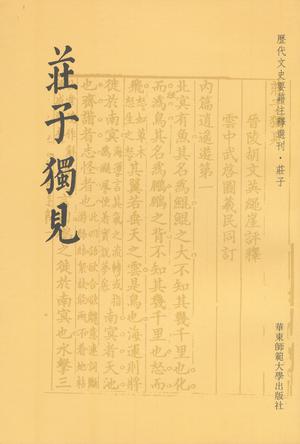 歷代文史要籍注釋選刊·莊子
華東師範大學出版社
晉陵胡文英繩崖評釋
雲中武啓圖羲民同訂
內篇逍遙遊第一
北冥有魚其名為鯤鯤之大不知其幾千里也化
而為鳥其名為鵬鵬之背不知其幾千里也怒而
飛其翼若垂天之雲是鳥也海運則將
徙於南冥南冥者天池
也齊諧者志怪者也
之徙於南冥也水擊三
莊子獨見